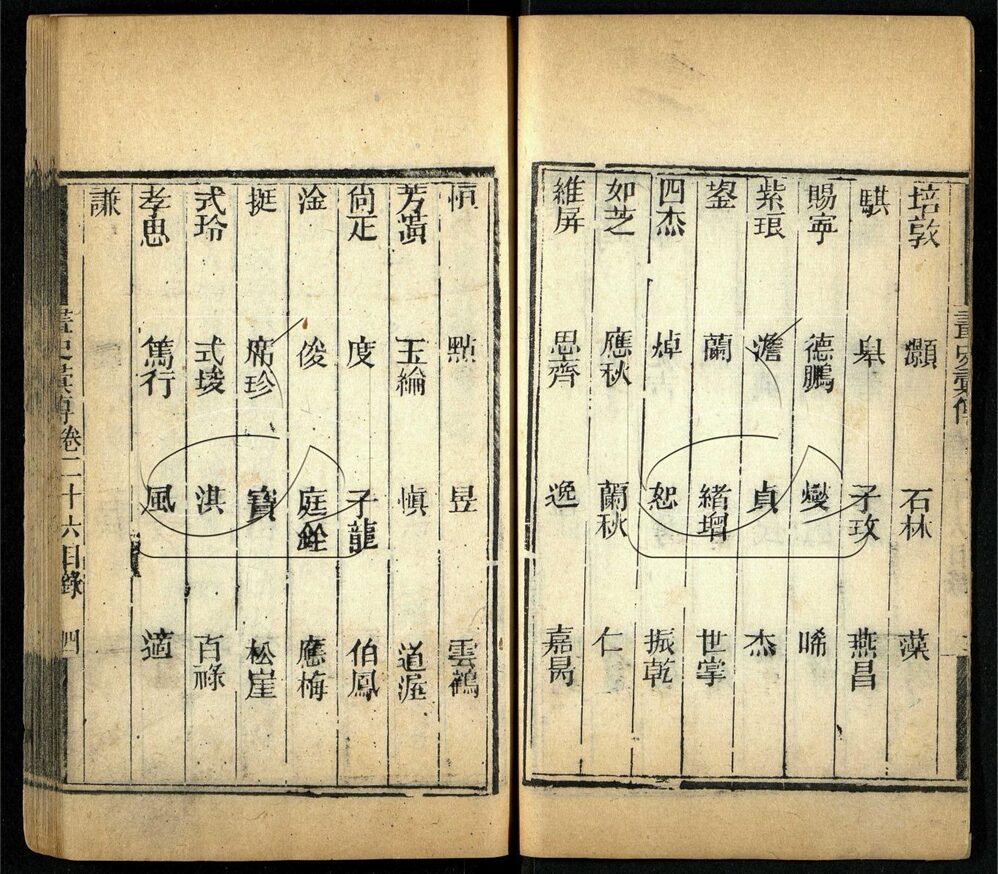 培敦 灝 石林 蓂
騏 皋 子玫 燕昌
賜寧 德鵬 燮 唏
紫琅 澹 貞 杰
鋆 蘭 緒增 世掌
四杰 焯 恕 振乾
如芝 應秋 蘭秋 仁
維屏 思齊 逸 嘉昺
恒 點 昱 雲鶴
芳蕙 玉綸 慎 道渥
尚疋 度 子龍 伯鳳
淦 俊 庭銓 應梅
挺 席珍 寶 松崖
式玲 式埈 淇 百祿
孝思 篤行 風 適
謙
畫史彙傳卷二十六目錄 四